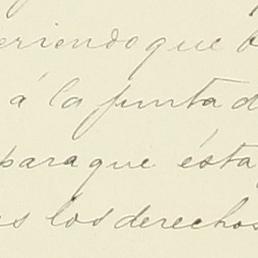 eriendo que
á la junta d
para que ésta
es los derechos